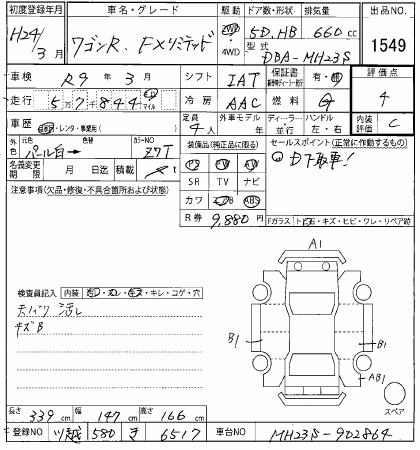 初度登録年月 車名・グレード 駆動 ドア数・形状 排気量 出品NO.
H24/3月 ワゴンR. FXリミテッド 2WD・4WD 5D.HB 660cc 1549
型式 DBA-MH23S
車検 R9年3月 シフト IAT 保証書 有・無 評価点
走行 5万7千844 キロ マイル 冷房 AAC 燃料 G 4
車歴 自家・レンタ・事業用( ) 定員 4人 外車モデル年 ディーラー・並行 ハンドル 左・右 内装評価 C
外色 元色 パール白→ 色替 カラーNO Z7T
装備品(純正品に限る) セールスポイント(正常に動作するもの)
名義変更期限 月 日迄 積載
PS PW AW ◎D下取車!
注意事項(欠品・修復・不具合箇所および状態)
SR TV ナビ
カワ エアB ABS
R券 9,880円
Fガラス トビ石・キズ・ヒビ・ワレ・リペア跡
A1
検査員記入 内装 コゲ・穴
キズB
B1 B1
AB1
スペア
長さ 339cm 幅 147cm 高さ 166cm
登録NO 川越 580 き 6517 車台NO MH23S-902864